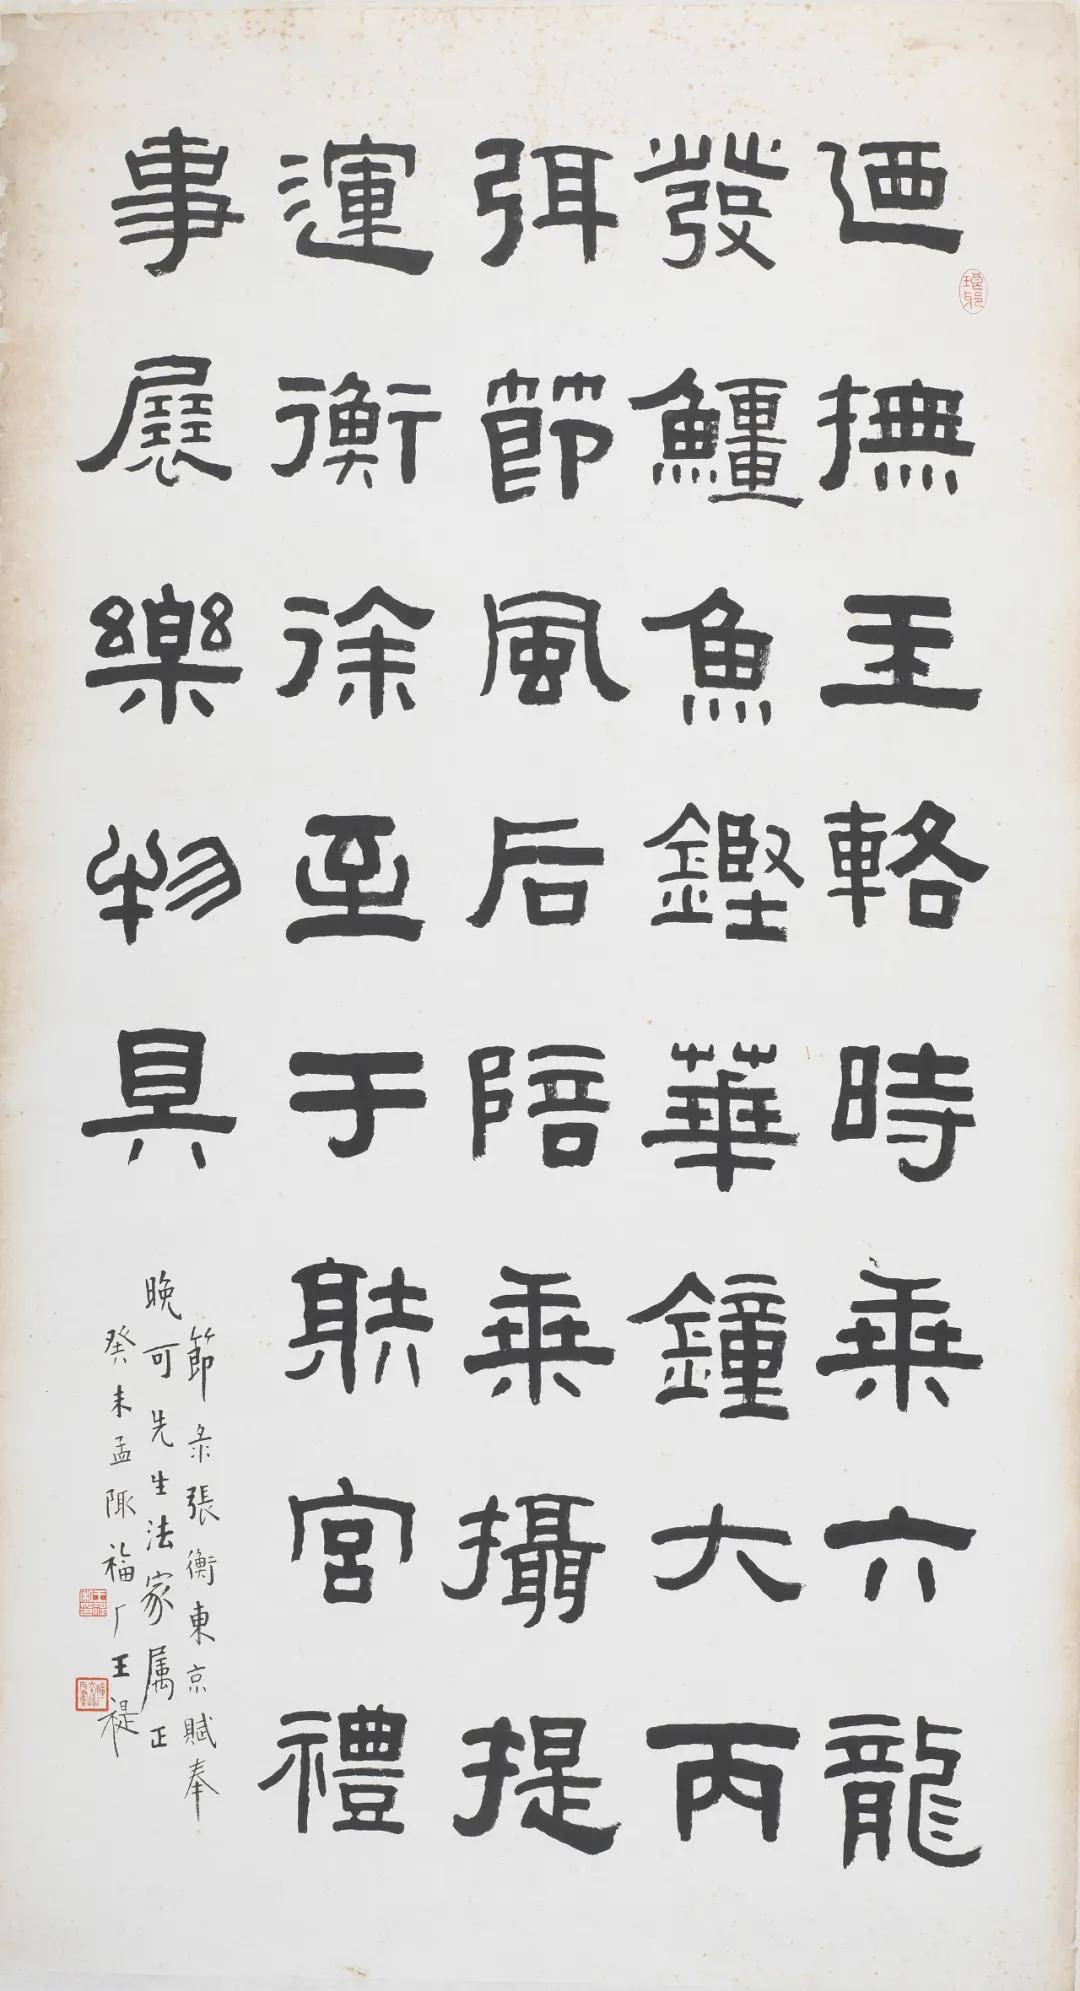 琅邪
迺撫玉輅時乘六龍
發䲔魚鏗華鐘大丙
弭節風后陪乘攝提
運衡徐至于䠶宮禮
事展樂物具
節彔張衡東京賦奉
晚可先生法家属正
癸未孟陬福厂王禔